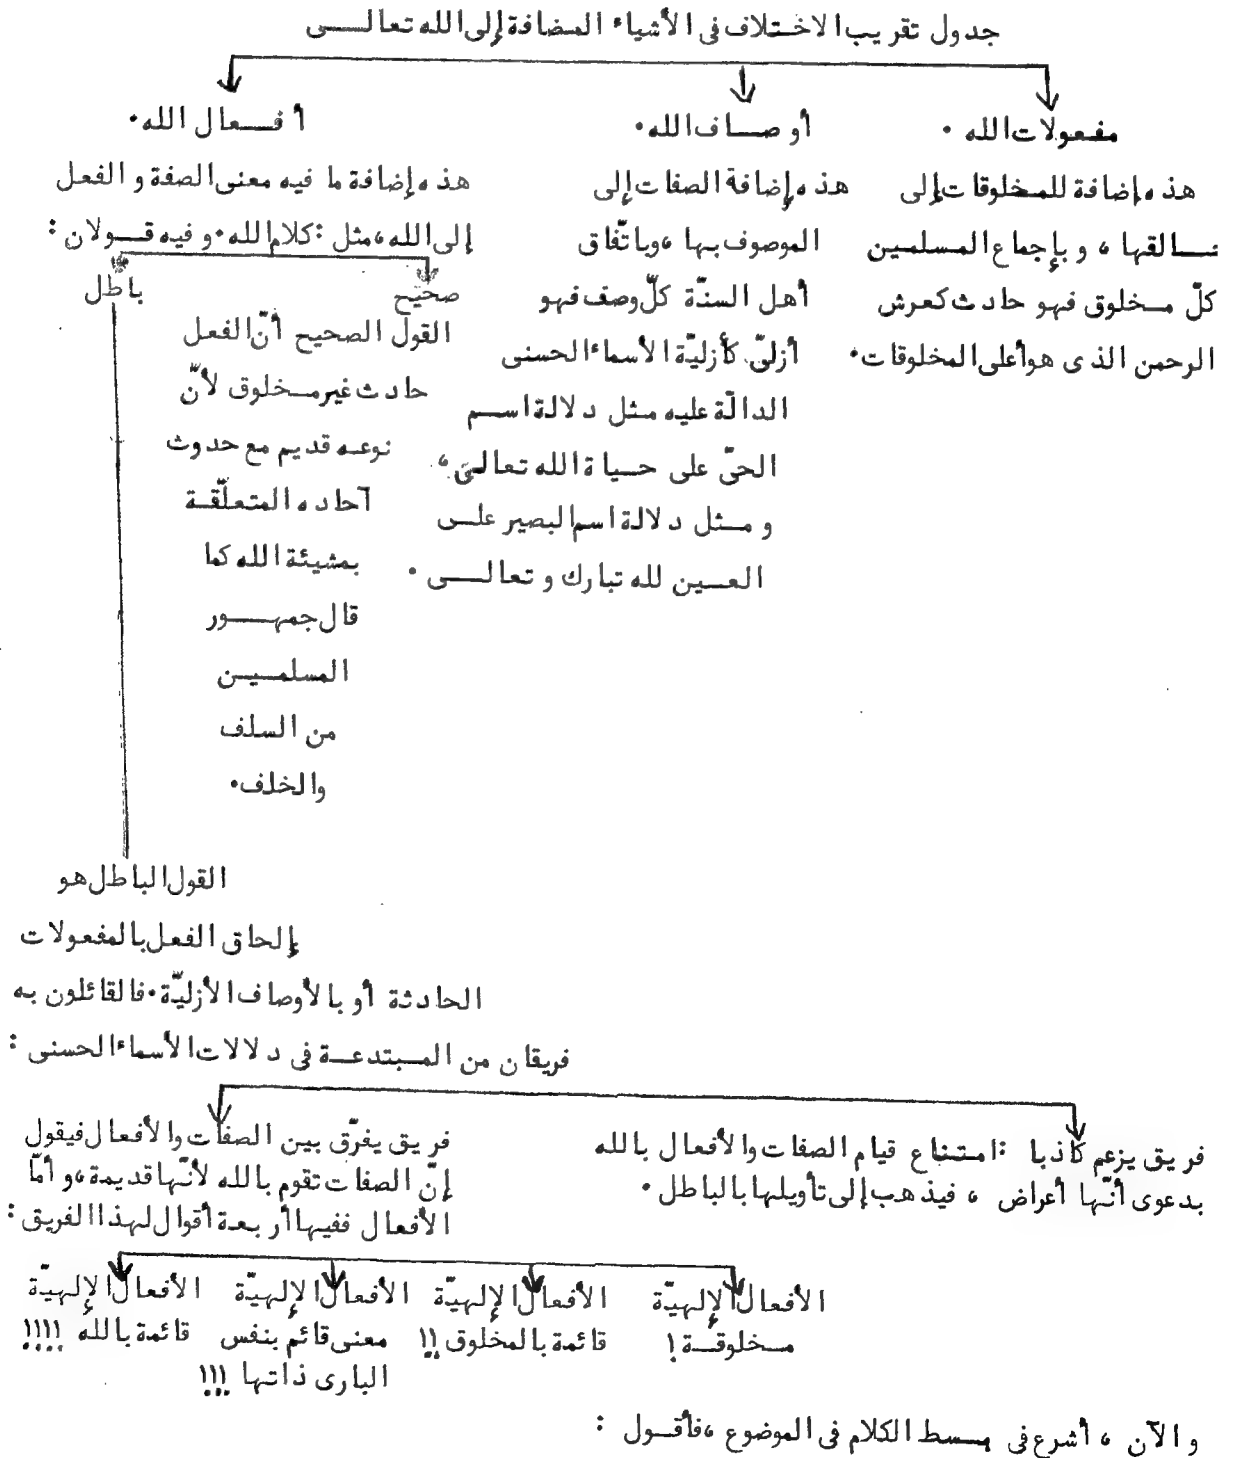 جدول تقريب الاختلاف في الأشياء المضافة إلى الله تعالى
مفعولات الله .
هذه إضافة للمخلوقات إلى
خالقها ، وبإجماع المسلمين
كلّ مخلوق فهو حادث كعرش
الرحمن الذى هو أعلى المخلوقات .
أوصاف الله .
هذه إضافة الصفات إلى
الموصوف بها ، وباتّفاق
أهل السنّة كلّ وصف فهو
أزليّ كأزليّة الأسماء الحسنى
الدالّة عليه مثل دلالة اسم
الحيّ على حياة الله تعالى ،
ومثل دلالة اسم البصير على
العين لله تبارك وتعالى .
أفعال الله .
هذه إضافة ما فيه معنى الصفة والفعل
إلى الله ، مثل : كلام الله . وفيه قولان :
صحيح
باطل
القول الصحيح أنّ الفعل
حادث غير مخلوق لأنّ
نوعه قديم مع حدوث
آحاده المتعلّقة
بمشيئة الله كما
قال جمهور
المسلمين
من السلف
والخلف .
القول الباطل هو
إلحاق الفعل بالمفعولات
الحادثة أو بالأوصاف الأزليّة . فالقائلون به
فريقان من المبتدعة في دلالات الأسماء الحسنى :
فريق يزعم كاذبا : امتناع قيام الصفات والأفعال بالله
بدعوى أنّها أعراض ، فيذهب إلى تأويلها بالباطل .
فريق يفرّق بين الصفات والأفعال فيقول
إنّ الصفات تقوم بالله لأنّها قديمة ، وأمّا
الأفعال ففيها أربعة أقوال لهذا الفريق :
الأفعال الإلهيّة
مخلوقة !
الأفعال الإلهيّة
قائمة بالمخلوق !!
الأفعال الإلهيّة
معنى قائم بنفس
البارى ذاتها !!!
الأفعال الإلهيّة
قائمة بالله !!!!
والآن ، أشرع في بسط الكلام في الموضوع ، فأقول :